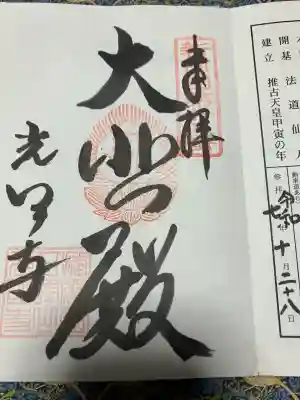 開基 法道仙人
建立 推古天皇甲寅の年
参拝
令和
七年十月二十八日
奉拝
大悲殿
光明寺